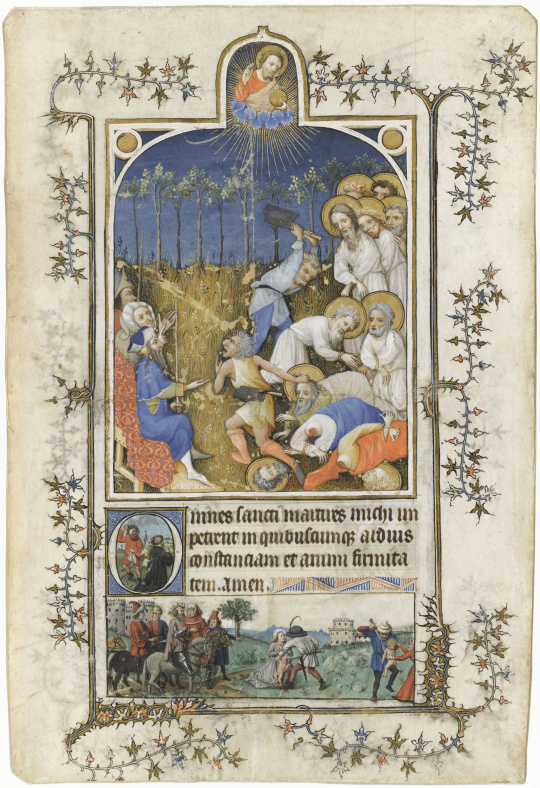 Omnes sancti martires michi im
petrent in quibuscumqꝫ arduis
constanciam et animi firmita
tem. Amen.